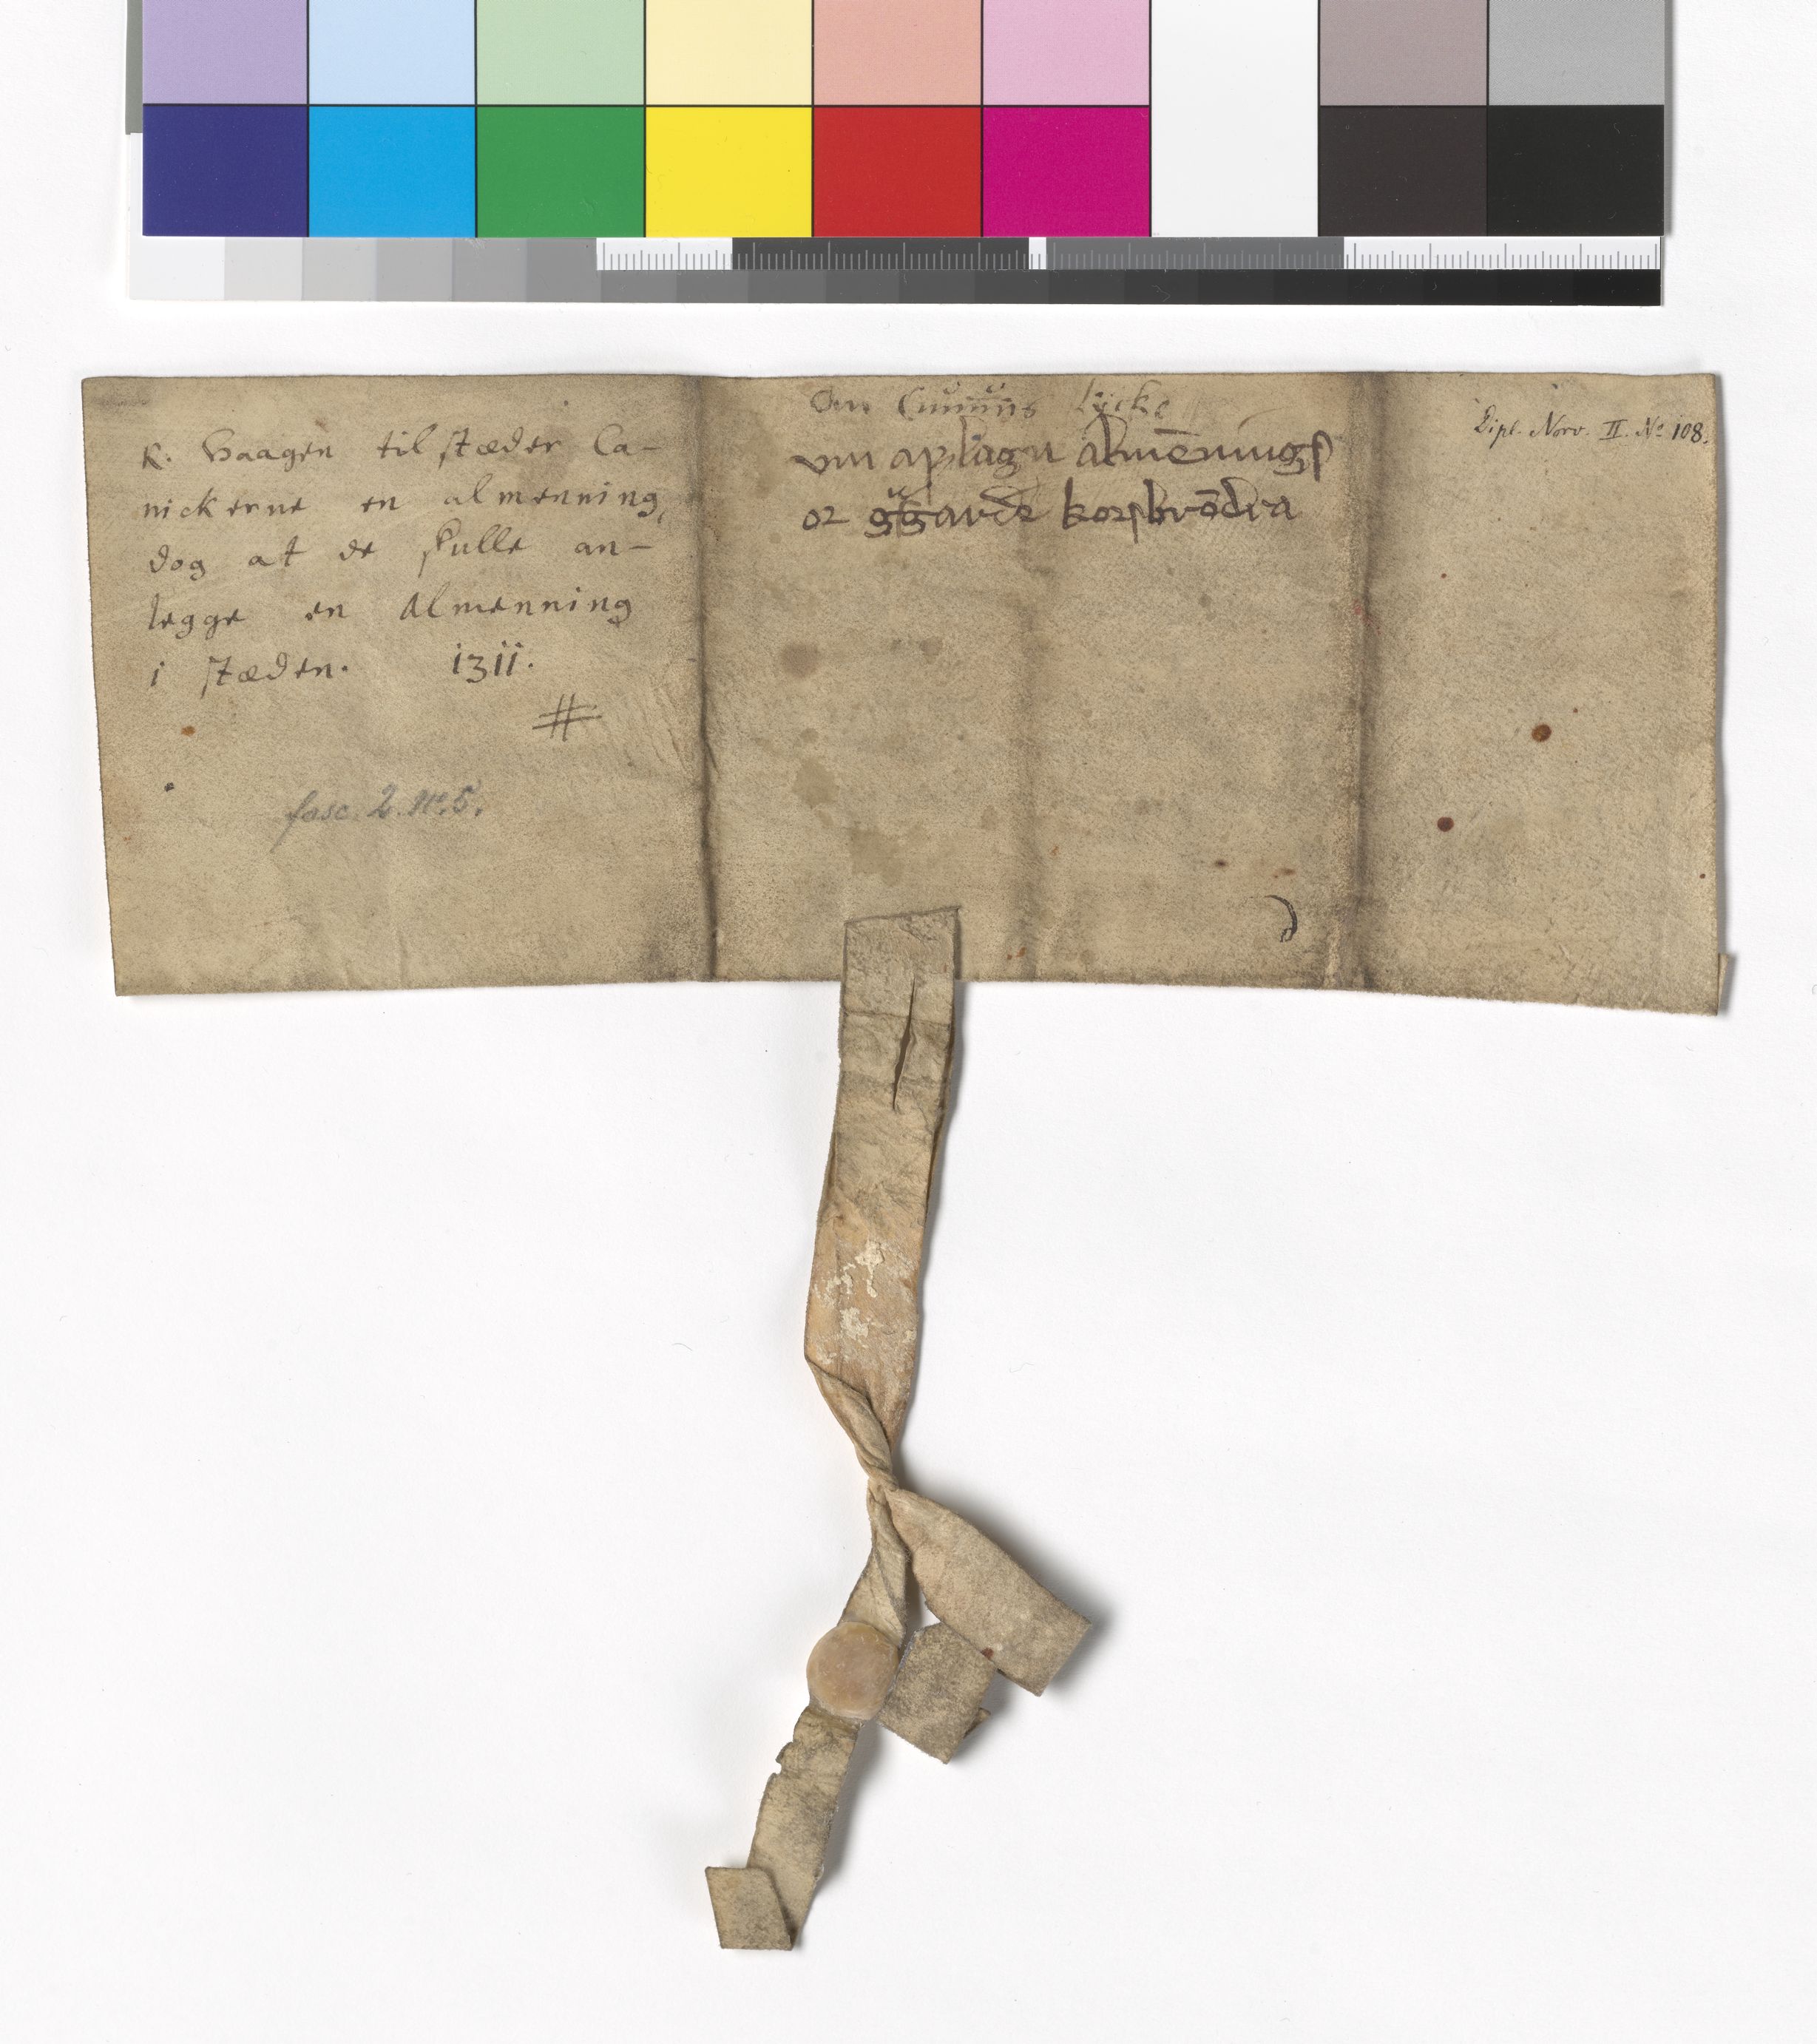 K. Haagen til stæder Ca-
nickerne en almenning,
dog at de skulle an-
legge en Almenning
i stæden. 1311.
#
fasc. 2. No. 5.
Om Lycke
vm aplagu almēnings
or garde korsbrōdra
Dipl. Norv. II. No 108.